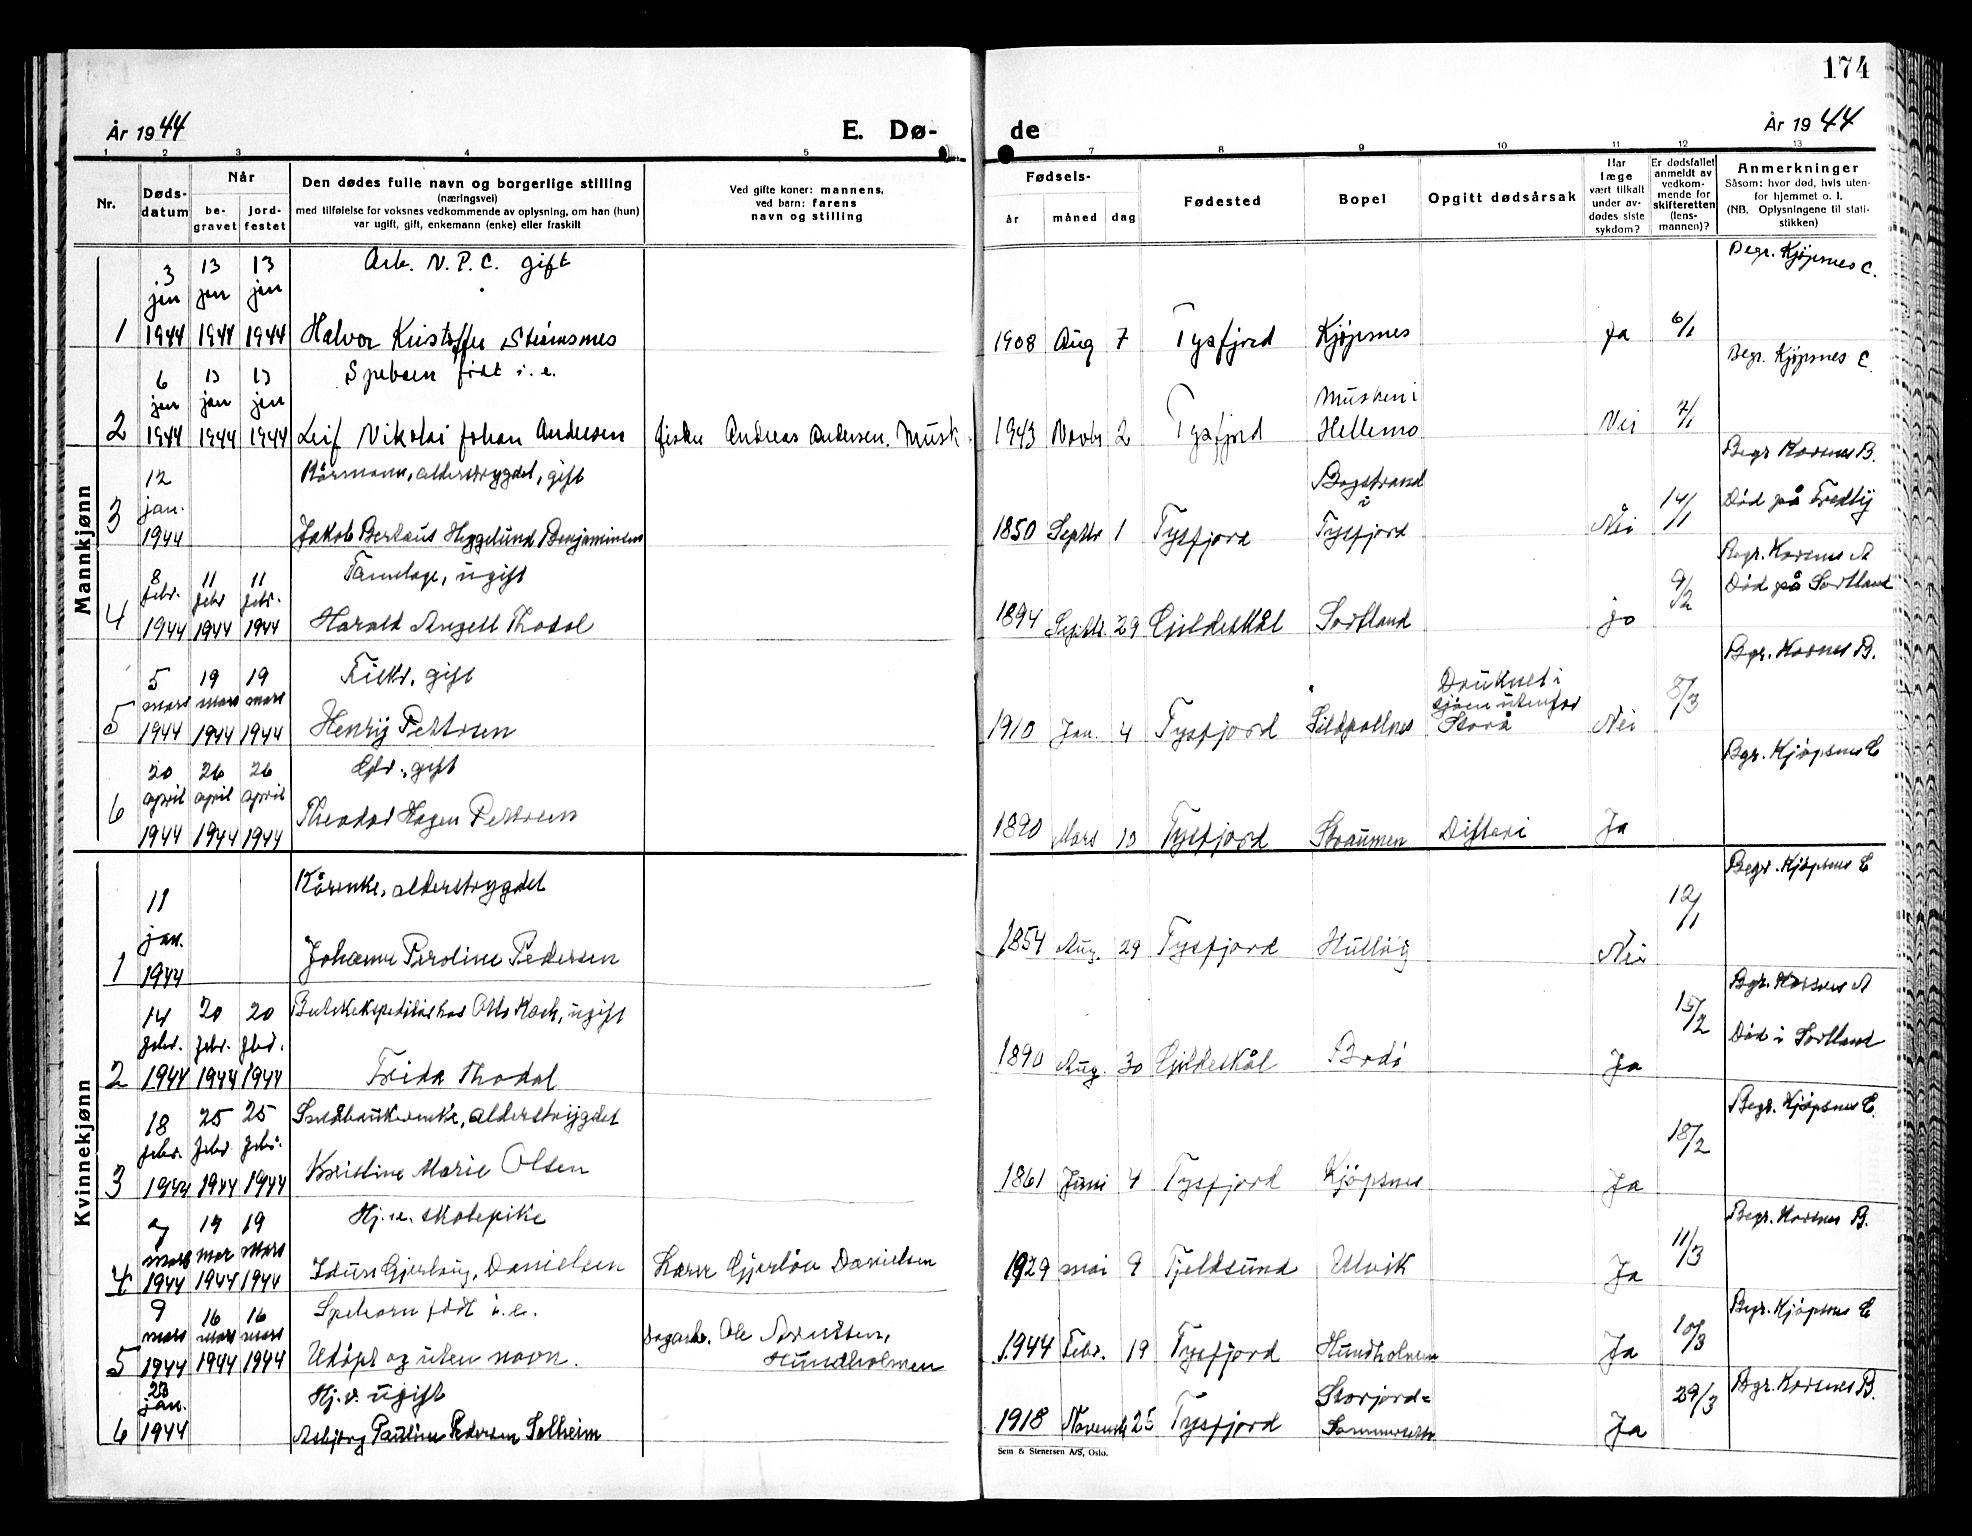 174
År 1944
E. Dø-
de
År 1944
1 2 3 4 5 7 8 9 10 11 12 13
Nr.
Døds-
datum
Når
be-
gravet
jord-
festet
Den dødes fulle navn og borgerlige stilling
(næringsvei)
med tilføielse for voksnes vedkommende av oplysning, om han (hun)
var ugift, gift, enkemann (enke) eller fraskilt
Ved gifte koner: mannens,
ved barn: farens
navn og stilling
Fødsels-
år måned dag
Fødested
Bopel
Opgitt dødsårsak
Har
læge
vært tilkalt
under av-
dødes siste
sykdom?
Er dødsfallet
anmeldt av
vedkom-
mende for
skifteretten
(lens-
mannen)?
Anmerkninger
Såsom: hvor død, hvis uten-
for hjemmet o. l.
(NB. Oplysningene til stati-
stikken)
Mannkjønn
3 13 13 Arb. N. P. C. gift Begr. Kjøpsnes C.
jan jan jan
1 1944 1944 1944 Halvor Kristoffer Steinsnes 1908 Aug 7 Tysfjord Kjøpsnes Ja 6/1
6 13 13 Spebarn født i. e. Begr. Kjøpsnes C.
jan jan jan Musken i
2 1944 1944 1944 Leif Nikolai Johan Andersen fisker Andreas Andersen, Musk. 1943 Novbr 2 Tysfjord Hellemo Nei 7/1
12 Kårmann, alderstrygdet, gift Bogstrand Begr Korsnes B.
jan. i 14/1 Død på Fredly
3 1944 Jakob Berteus Heggelund Benjaminsen 1850 Septbr 1 Tysfjord Tysfjord Nei
8 11 11 Tannlæge, ugift Begr. Korsnes A
febr. febr febr. 9/2 Død på Sortland
4 1944 1944 1944 Harald Angell Thodal 1894 Septbr. 29 Gjildeskål Sortland ja
5 19 19 Fisker, gift Druknet i Bgr. Korsnes B.
mars mars mars sjøen utenfor 8/3
5 1944 1944 1944 Henry Pettersen 1910 Jan. 4 Tysfjord Sildpollnes Storå Nei
20 26 26 gift Bgr. Kjøpsnes C
april april april
6 1944 1944 1944 Theodor Hagen Pettersen 1890 Mars 13 Tysfjord Straumen Difteri Ja
Kvinnekjønn
11 Kårenke, alderstrygdet Begr. Kjøpsnes C
jan. 12/1
1 1944 Johanne Peroline Pedersen 1854 Aug. 29 Tysfjord Hulløy Nei
14 20 20 Butikkekspeditør hos Otto Koch, ugift Bgr. Korsnes A
febr. febr. febr. 15/2 Død i Sortland
2 1944 1944 1944 Frida Thodal 1890 Aug. 30 Gjildeskål Bodø Ja
18 25 25 Småbrukerenke, alderstrygdet Begr. Kjøpsnes C.
febr. febr febr. 18/2
3 1944 1944 1944 Kristine Marie Olsen 1861 Juni 4 Tysfjord Kjøpsnes Ja
19 19 Hj. v. skolepike Begr. Korsnes B.
mars mar mars 11/3
4 1944 1944 1944 Idun Gjerløug, Danielsen Lærer Gjerløw Danielsen 1929 mai 9 Fjeldsund Ulvik Ja
9 16 16 Spebarn født i. e. Begr. Kjøpsnes C
mars mars mars Ole Arntsen, 10/3
5 1944 1944 1944 Udøpt og uten navn. Hundholmen 1944 Febr. 19 Tysfjord Hundholmen Ja
23 Hj. v. ugift Storjord= Bgr. Korsnes B.
jan. 29/3
6 1944 Asbjørg Pauline Pedersen Solheim 1918 Novemb 25 Tysfjord Sommerset Ja
Sem & Stenersen A/S, Oslo.